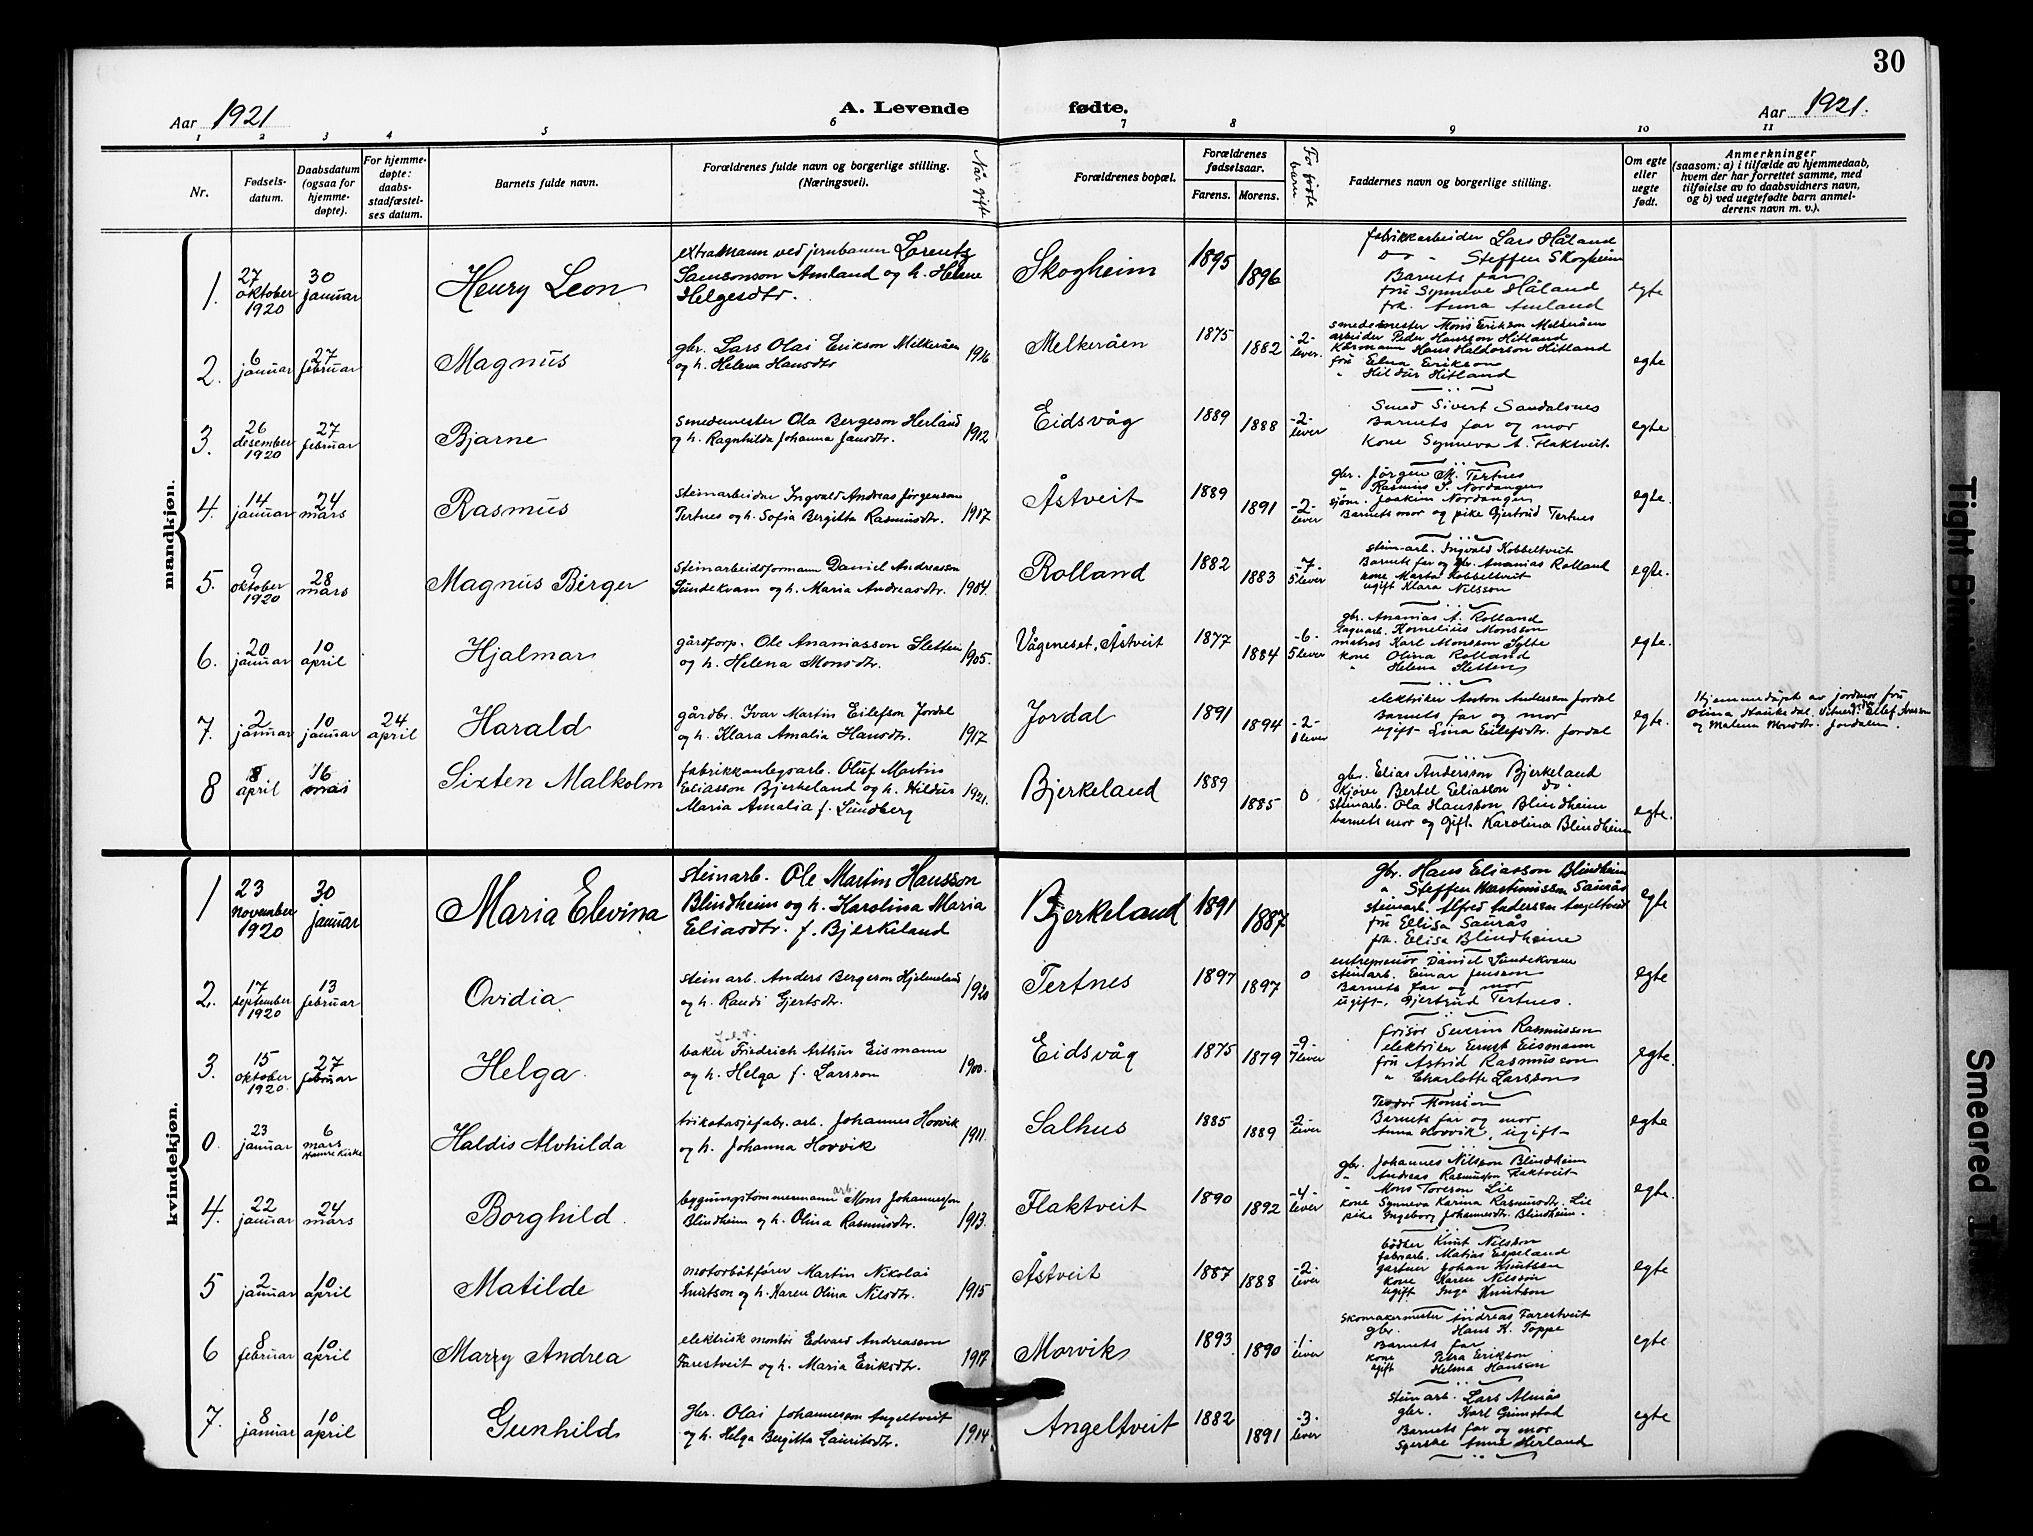 30
Aar 1921
A. Levende
fødte.
Aar 1921.
1 2 3 4 5 6 7 8 9 10 11
Nr.
Fødsels-
datum.
Daabsdatum
(ogsaa for
hjemme-
døpte).
For hjemme-
døpte:
daabs-
stadfæstel-
ses datum.
Barnets fulde navn.
Forældrenes fulde navn og borgerlige stilling.
(Næringsvei).
Når gift
Forældrenes bopæl.
Forældrenes
fødselsaar.
Farens. Morens.
For fødte
barn
Faddernes navn og borgerlige stilling.
Om egte
eller
uegte
født.
Anmerkninger
(saasom: a) i tilfælde av hjemmedaab,
hvem der har forrettet samme, med
tilføielse av to daabsvidners navn,
og b) ved uegtefødte barn anmel-
derens navn m. v.).
mandkjøn.
1.
27
oktober
1920
30
januar
Henry Leon
extramann ved jernbanen Lorentz
Samsonson Amland og h. Helene
Helgesdtr.
Skogheim
1895
1896
fabrikkarbeider Lars Håland
Do " Steffen Skogheim
Barnets far
fru Synneve Håland
frk. Anna Amland
egte
2.
6
januar
27
februar
Magnus
gbr. Lars Olai Erikson Melkeråen
og h. Helena Hansdtr
1916
Melkeråen
1875
1882
-2-
lever.
smedemester Mons Erikson Melkeråen
arbeider Peder Hansson Hitland
Kårmann Hans Haldorson Hitland
fru Elna Erikson
" Hildur Hitland
egte
3.
26
desember
1920
27
februar
Bjarne
Smedemester Ola Bergeson Herland
og h. Ragnhilda Johanna Jansdtr.
1912
Eidsvåg
1889
1888
-2-
lever
Smed Sivert Sandalsnes
Barnets far og mor
Kone Synneva A. Flaktveit.
egte
4.
14
januar
24
mars
Rasmus
steinarbeider Ingvald Andreas Jørgenson
Tertnes og h. Sofia Bergitta Rasmusdtr.
1917
Åstveit
1889
1891
-2-
lever
gbr. Jörgen M. Tertnes
" Rasmus S. Nordanger
sjöm. Joakim Nordanger
Barnets mor og pike Gjertrud Tertnes
egte.
5.
9
oktober
1920
28
mars
Magnus Berger
steinarbeidsformann Daniel Andreasson
Sundekvam og h. Maria Andreasdtr.
1904.
Rolland
1882
1883
-7-
5 lever
stein-arb. Ingvald Kobbeltveit
Barnets far og gbr. Ananias Rolland
kone Marta Kobbeltveit
ugift Klara Nilsson
egte.
6.
20
januar
10
april
Hjalmar
gårdforp. Ole Ananiasson Sletten
og h. Helena Monsdtr.
1905.
Vågeneset, Åstveit
1877
1884
-6-
5 lever
gbr. Ananias A. Rolland
Kornelius Monsson
matros Karl Monsson Sylte
kone Olina Rolland
" Helena Sletten
egte.
7.
2
januar
10
januar
24
april
Harald
gårdbr. Ivar Martin Eilefson Jordal
og h. Klara Amalia Hansdtr.
1917
Jordal
1891
1894
-2-
1 lever
elektriker Anton Andersson Jordal
Barnets far og mor
ugift Lina Eilefsdtr. Jordal
egte.
Hjemmedöpt av jordmor fru
Olina Haukedal. Vitner:
og Malena Monsdtr. Jordalen.
8
8
april
16
mai
Sixten Malkolm
fabrikkanlegsarb. Oluf Martin
Eliasson Bjerkeland og h. Hildur
Maria Amalia f. Lundberg
1921.
Bjerkeland
1889
1885
0
gbr. Elias Andersson Bjerkeland
kjörer Bertel Eeliasson do.
steinarb. Ola Hansson Blindheim
barnets mor og gift Karolina Blindheim
egte.
kvindekjøn.
1
23
november
1920
30
januar
Maria Elevina
steinarb. Ole Martin Hansson
Blindheim og h. Karolina Maria
Eliasdtr. f. Bjerkeland
Bjerkeland
1891
1887
gbr. Hans Eliasson Blindheim
" Steffen Martinusson Saurås
steinarb. Alfred Anderson Angeltveit
fru Ellisa Saurås
frk. Elisa Blindheim
egte
2.
17
september
1920
13
februar
Ovidia
steinarb. Anders Bergeson Hjelmeland
og h. Randi Gjertsdtr.
1920
Tertnes
1897
1897
0
entreprenör Daniel Sundekvam
steinarb. Einar Jensson
Barnets far og mor
ugift. Gjertrud Tertnes.
egte
3.
15
oktober
1920.
27
februar
Helga
baker Friedrich Arthur Eismann
og h. Helga f. Larsson
1900.
Eidsvåg
1875
1879
-9-
7 lever
frisör Severin Rasmusson
elektriker Ernst Eismann
fru Astrid Rasmusson
" Charlotte Larsson
egte.
0.
23
januar
6
mars
Hamre Kirke
Haldis Alvhilda
trikotasjefabr. arb. Johannes Hovvik
og h. Johanna Hovvik
1911.
Salhus
1885
1889
-2-
lever
Teodor Monsson
Barnets far og mor
Anna Hovvik, ugift
egte
4.
22
januar
24
mars
Borghild.
bygningstömmermann arb. Mons Johannesson
Blindheim og h. Olina Rasmusdtr.
1913.
Flaktveit
1890
1892
-4-
lever
gbr. Johannes Nilsson Blindheim
" Andreas Rasmusson Flaktveit
" Mons Toreson Lie
kone Synneva Karina Rasmusdtr. Lie
pike Ingeborg Johannesdtr. Blindheim.
egte.
5
2
januar
10
april
Matilde
motorbåtförer Martin Nikolai
Knutson og h. Karen Olina Nilsdtr.
1915
Åstveit
1887
1888
-2-
lever
bödker Knut Nilsson
fabrarb. Matias Espeland
gartner Johan Knutsen
kone Karen Nilsson
ugift Inga Knutson
egte
6
8
februar
10
april
Marry Andrea
elektrisk montör Edvard Andreasson
Farestveit og h. Maria Eriksdtr.
1917
Morvik
1893
1890
-1-
lever
Skomakermester Andreas Farestveit
gbr. Hans K. Toppe
Barnets far
kone Petra Erikson
ugift Helma Hanson
egte
7.
8
januar
10
april
Gunhild
Gbr. Olai Johannesson Angeltveit
og h. Helga Bergitta Lauritsdtr.
1914.
Angeltveit
1882
1891
-3-
lever
steinarb. Lars Almås
gbr. Karl Grimstad
Barnets far og mor
Anna Herland
egte
Tight Bin
Smeared I